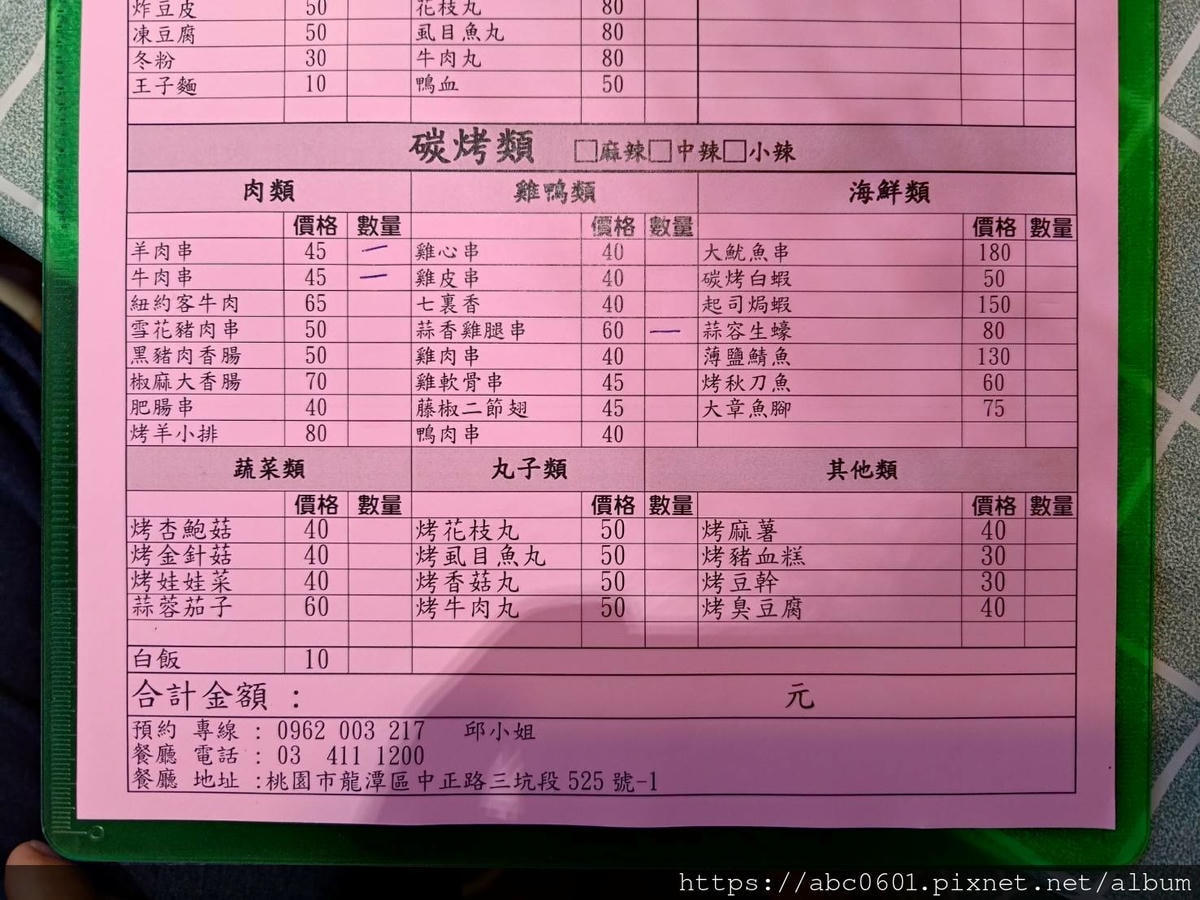 炸豆皮 50 花枝丸 80
凍豆腐 50 虱目魚丸 80
冬粉 30 牛肉丸 80
王子麵 10 鴨血 50
碳烤類 □麻辣□中辣□小辣
肉類 雞鴨類 海鮮類
價格 數量 價格 數量 價格 數量
羊肉串 45 一 雞心串 40 大魷魚串 180
牛肉串 45 一 雞皮串 40 碳烤白蝦 50
紐約客牛肉 65 七裏香 40 起司焗蝦 150
雪花豬肉串 50 蒜香雞腿串 60 一 蒜容生蠔 80
黑豬肉香腸 50 雞肉串 40 薄鹽鯖魚 130
椒麻大香腸 70 雞軟骨串 45 烤秋刀魚 60
肥腸串 40 藤椒二節翅 45 大章魚腳 75
烤羊小排 80 鴨肉串 40
蔬菜類 丸子類 其他類
價格 數量 價格 數量 價格 數量
烤杏鮑菇 40 烤花枝丸 50 烤麻薯 40
烤金針菇 40 烤虱目魚丸 50 烤豬血糕 30
烤娃娃菜 40 烤香菇丸 50 烤豆幹 30
蒜蓉茄子 60 烤牛肉丸 50 烤臭豆腐 40
白飯 10
合計金額 : 元
預約 專線 : 0962 003 217 邱小姐
餐廳 電話 : 03 411 1200
餐廳 地址 :桃園市龍潭區中正路三坑段 525 號-1
https://abc0601.pixnet.net/album